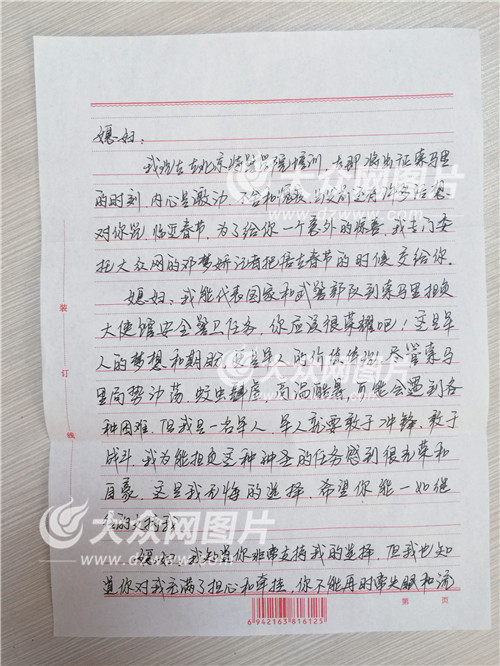 媳妇:
我现在在北京特警学院培训,在即将出征索马里
的时刻,内心是激动、不舍和
对你说。临近春节,为了给你一个意外的惊喜,我专门委
托大众网的邓梦娇记者把信在春节的时候交给你。
媳妇:我能代表国家和武警部队到索马里担负
大使馆安全警卫任务,你应该很荣耀吧!这是军
人的梦想和期盼,这是军人的价值体现。尽管索马
里局势动荡,蚊虫肆虐,高温酷暑,可能会遇到各
种困难,但我是一名军人,军人就要敢于冲锋,敢于
战斗。我为能担负这种神圣的任务感到很光荣和
自豪。这是我无悔的选择,希望你能一如继
往的支持我。
媳妇:我知道你非常支持我的选择,但我也知
道你对我充满了担心和牵挂,你不能再时常失眠和流
装
订
线
第 页
6 942163 816125
大众网图片
www.dzwww.com
大众网图片
大众网图片